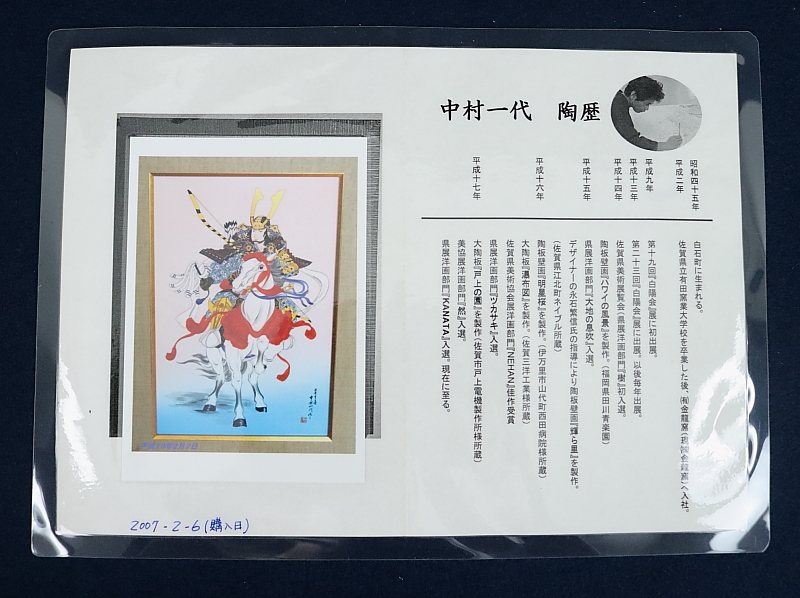 中村一代　陶歴
昭和四十五年
白石町に生まれる。
平成二年
佐賀県立有田窯業大学校を卒業した後、㈲金龍窯(現㈱金龍窯)へ入社。
平成九年
第十九回『白陽会』展に初出展。
平成十三年
第二十三回『白陽会』展に出展。以後毎年出展。
平成十四年
佐賀県美術展覧会(県展洋画部門『樹』初入選。
陶板壁画『ハワイの風景』を製作。(福岡県田川青楽園)
平成十五年
県展洋画部門『大地の息吹』入選。
デザイナーの永石繁信氏の指導により陶板壁画『輝ら里』を製作。
(佐賀県江北町ネイブル所蔵)
平成十六年
陶板壁画『明星桜』を製作。(伊万里市山代町西田病院様所蔵)
大陶板『瀑布図』を製作。(佐賀三洋工業様所蔵)
佐賀県美術協会展洋画部門『NEHAN』佳作受賞
県展洋画部門『ツカサキ』入選。
平成十七年
大陶板『戸上の園』を製作(佐賀市戸上電機製作所様所蔵)
美協展洋画部門『然』入選。
県展洋画部門『KANATA』入選。現在に至る。
2007-2-6(購入日)